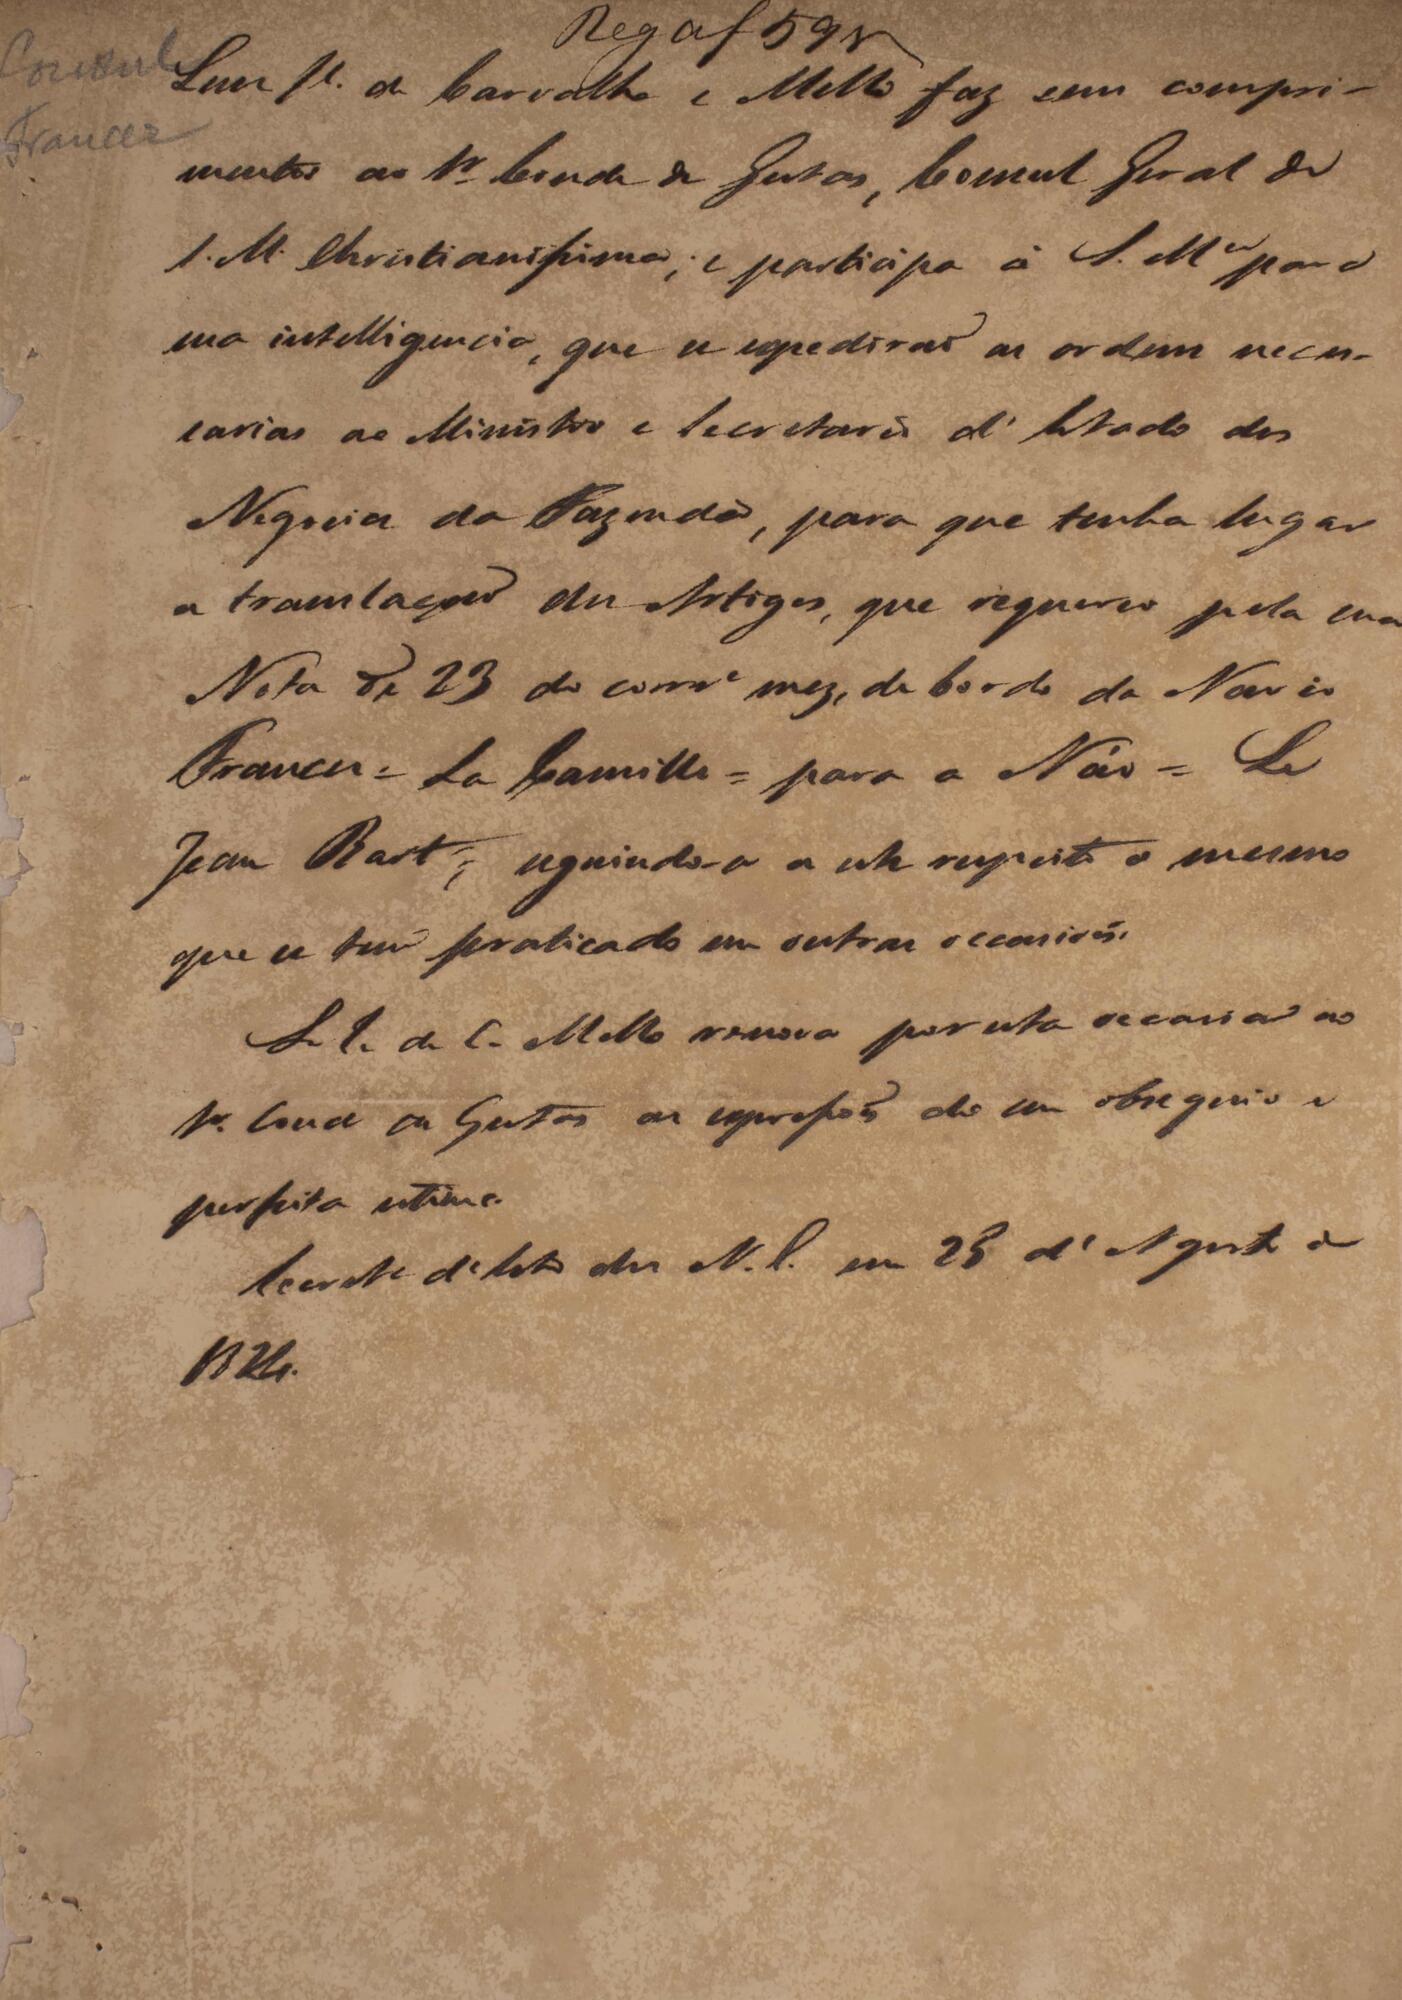 Reg a f 59v
Consul
Francez
Luiz Je. de Carvalho e Mello faz seus compri-
mentos ao Sr. Conde de Gestas, Consul Geral de
S. M. Christianissima; e participa á S. Mce. para
sua intelligencia, que se expediraõ as ordens neces-
sarias ao Ministro e Secretario d'Estado dos
Negocios da Fazenda, para que tenha lugar
a translaçaõ dos Artigos, que requereo pela sua
Nota de 23 do corre. mez, de bordo do Navio
Francez = La Camille = para a Náo = Le
Jean Bart =; seguindo-se a este respeito o mesmo
que se tem praticado em outras occasioẽs.
L. J. de C. Mello renova por esta occasiaõ ao
Sr. Conde de Gestas as expressoẽs do seu obsequio e
perfeita estima.
Secrete. d'Esto. dos N. E. em 28 d'Agosto de
1824.